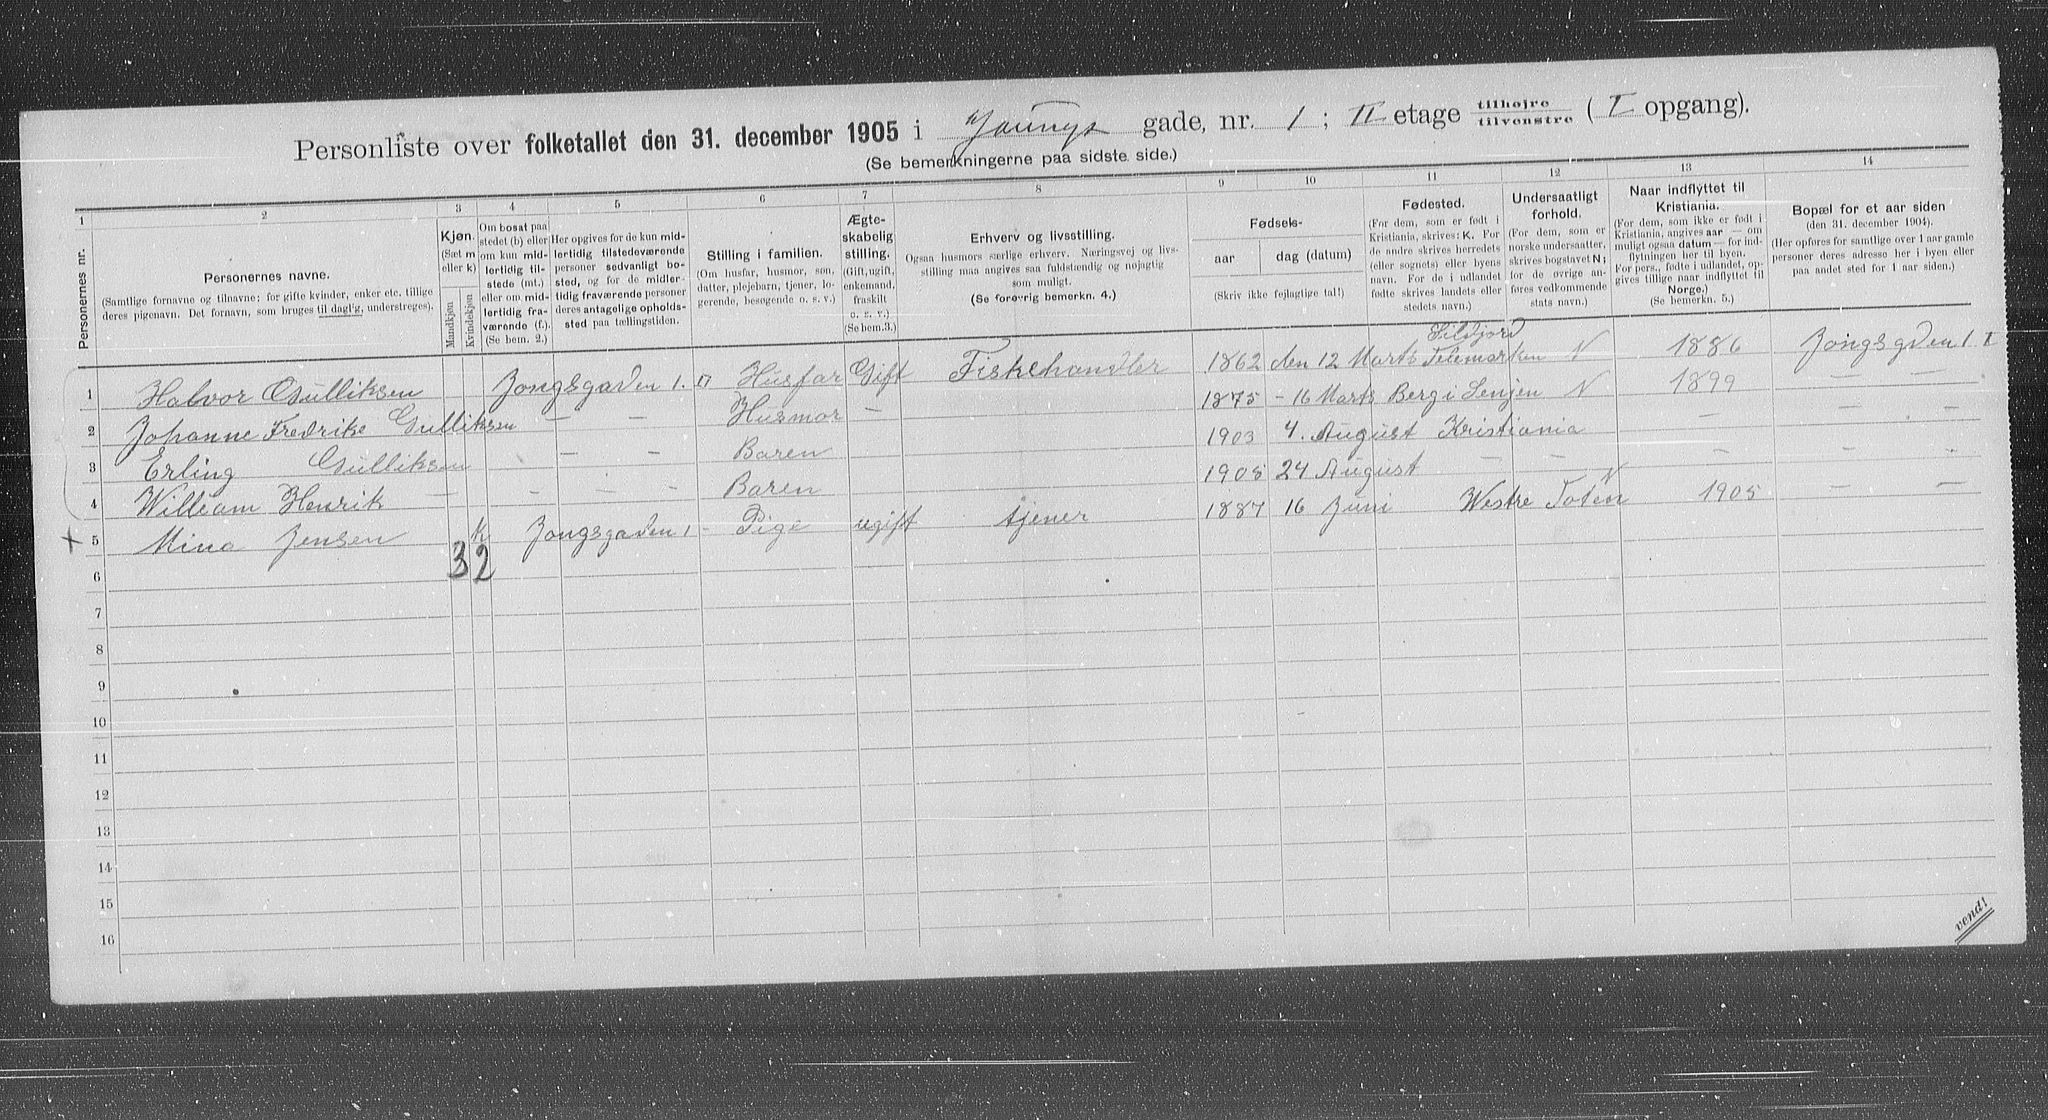 Personliste over folketallet den 31. december 1905 i Youngs gade, nr. 1 ; II etage tilhøjre tilvenstre ( I opgang).
(Se bemerkningerne paa sidste side.)
1 2 3 4 5 6 7 8 9 10 11 12 13 14
Personernes nr.
Personernes navne.
(Samtlige fornavne og tilnavne; for gifte kvinder, enker etc. tillige
deres pigenavn. Det fornavn, som bruges til dagl'g, understreges).
Kjøn.
(Sæt m
eller k)
Mandkjøn
Kvindekjøn
Om bosat paa
stedet (b) eller
om kun mid-
lertidig til-
stede (mt.)
eller om mid-
lertidig fra-
værende (f.)
(Se bem. 2.)
Her opgives for de kun mid-
lertidig tilstedeværende
personer sedvanligt bo-
sted, og for de midler-
tidig fraværende personer
deres antagelige opholds-
sted paa tællingstiden.
Stilling i familien.
(Om husfar, husmor, søn,
datter, plejebarn, tjener, lo-
gerende, besøgende o. s. v.)
Ægte-
skabelig
stilling.
(Gift, ugift,
enkemand,
fraskilt
o. s. v.)
(Se bem.3.)
Erhverv og livsstilling.
Ogsaa husmors særlige erhverv. Næringsvej og livs-
stilling maa angives saa fuldstændig og nøjagtig
som muligt.
(Se forøvrig bemerkn. 4.)
Fødsels-
aar
dag (datum)
(Skriv ikke fejlagtige tal!)
Fødested.
(For dem, som er født i
Kristiania, skrives: K. For
de andre skrives herredets
(eller sognets) eller byens
navn. For de i udlandet
fødte skrives landets eller
stedets navn.)
Undersaatligt
forhold.
(For dem, som er
norske undersaatter,
skrives bogstavet N;
for de øvrige an-
føres vedkommende
stats navn.)
Naar indflyttet til
Kristiania.
(For dem, som ikke er født i
Kristiania, angives aar — om
muligt ogsaa datum — for ind-
flytningen her til byen.
For pers., fødte i udlandet, op-
gives tillige naar indflyttet til
Norge.)
(Se bemerkn. 5.)
Bopæl for et aar siden
(den 31. december 1904).
(Her opføres for samtlige over 1 aar gamle
personer deres adresse her i byen eller
paa andet sted for 1 aar siden.)
1 Halvor Gulliksen Jongsgaden 1. Husfar Gift Fiskehandler 1862 den 12 Marts Telemarken N 1886 Jongsgden 1 I
2 Johanne Fredrike Gulliksen — — Husmor — 1875 - 16 Marts Berg i Senjen N 1899 — —
3 Erling Gulliksen — — Baren 1903 4. August Kristiania — — —
4 William Henrik — — — — Baren 1905 24 August — — — —
+ 5 Mina Jensen k Jongsgaden 1 - Pige ugift tjener 1887 16 Juni Westre Toten N 1905 — —
3 2
6
7
8
9
10
11
12
13
14
15
16
vend!